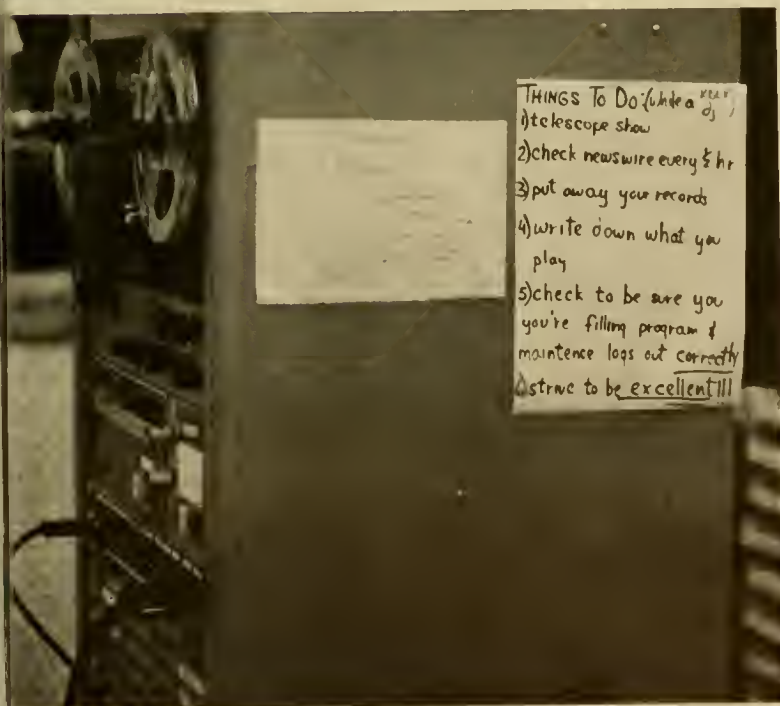 THINGS TO DO (while a
dj
1) telescope show
2) check newswire every ½ hr
3) put away your records
4) write down what you
play
5) check to be sure you
you're filling program &
maintence logs out correctly
6) strive to be excellent!!!